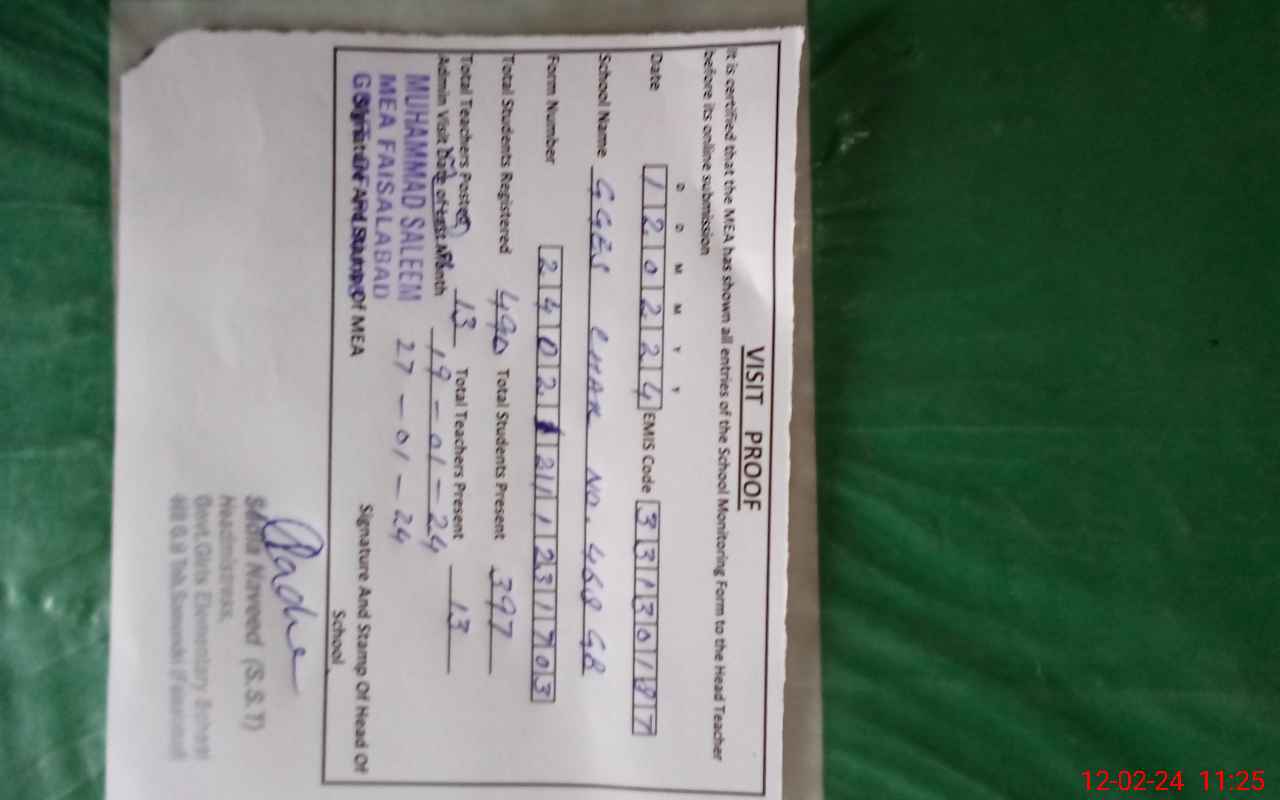 VISIT PROOF
It is certified that the MEA has shown all entries of the School Monitoring Form to the Head Teacher
before its online submission
D D M M Y Y
Date 120224 EMIS Code 33130187
School Name GGES CHAK NO. 468 GB
Form Number
Total Students Registered 490 Total Students Present 397
Total Teachers Posted 13 Total Teachers Present 13
Admin Visit Date of Last Month 19-01-24
MUHAMMAD SALEEM 27-01-24
MEA FAISALABAD
Signature And Stamp Of MEA Signature And Stamp Of Head Of
School
Naveed (S.S.T)
Headmistress,
Govt. Girls Elementary School
12-02-24 11:25